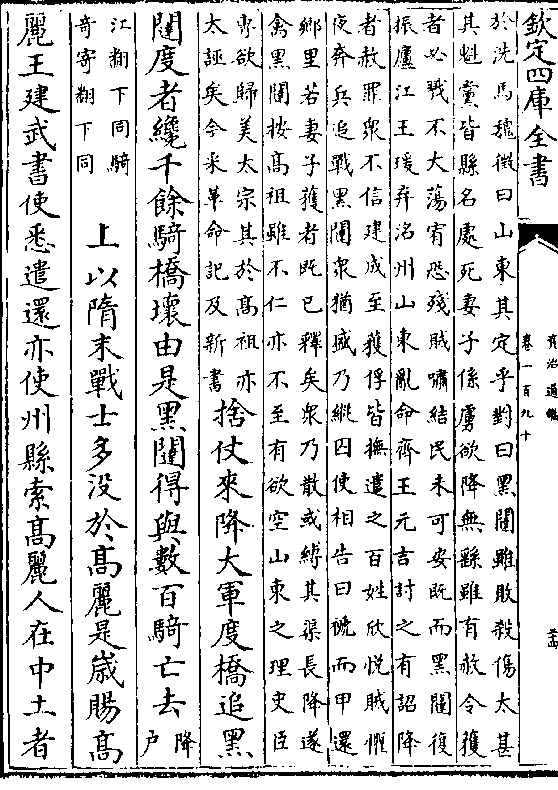 欽定四庫全書
資治通鑑
卷一百九十
於洗馬魏徵曰山東其定乎對曰黑闥雖敗殺傷太甚
其魁黨皆縣名處死妻子係虜欲降無繇雖有赦令獲
者必戮不大蕩宥恐殘賊嘯結民未可安既而黑闥復
振廬江王瑗棄洺州山東亂命齊王元吉討之有詔降
者赦罪衆不信建成至獲俘皆撫遣之百姓欣悦賊懼
夜奔兵追戰黑闥衆猶盛乃縱囚使相告曰褫而甲還
鄉里若妻子獲者既已釋矣衆乃散或縛其渠長降遂
禽黑闥按髙祖雖不仁亦不至有欲空山東之理史臣
專欲歸美太宗其於髙祖亦
太誣矣今采革命記及新書
捨仗來降大軍度橋追黑
闥度者纔千餘騎橋壞由是黑闥得與數百騎亡去
降户
江翻下同騎
奇寄翻下同
上以隋末戰士多没於髙麗是嵗賜髙
麗王建武書使悉遣還亦使州縣索髙麗人在中土者